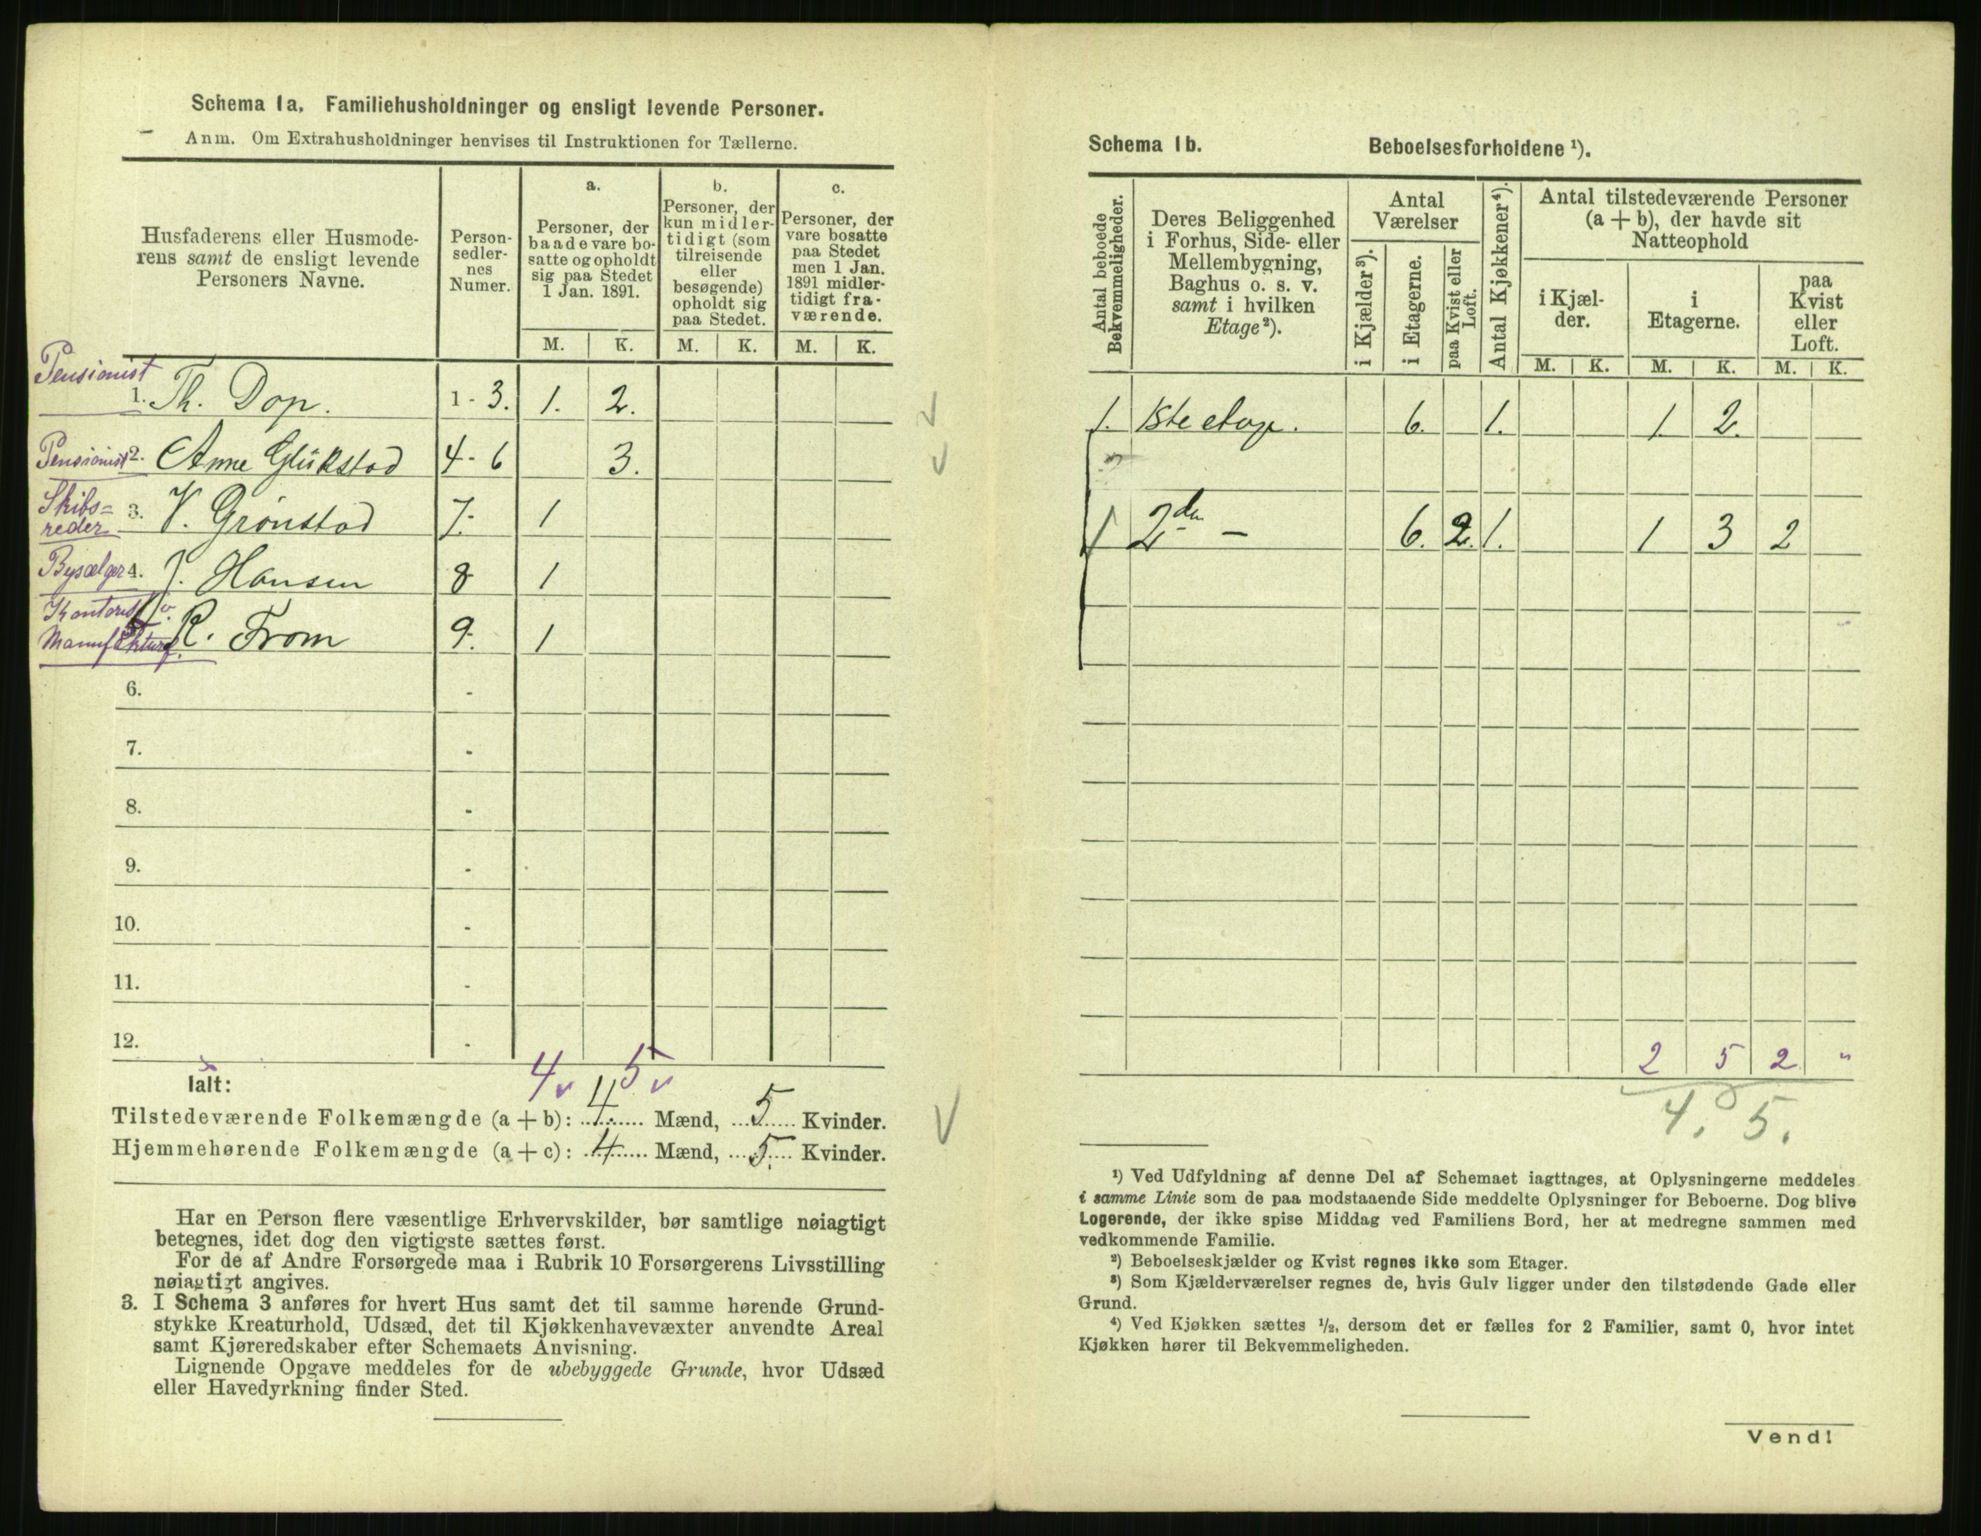 Schema 1a. Familiehusholdninger og ensligt levende Personer.
Anm. Om Extrahusholdninger henvises til Instruktionen for Tællerne.
Husfaderens eller Husmode-
rens samt de ensligt levende
Personers Navne.
Person-
sedler-
nes
Numer.
a.
Personer, der
baade vare bo-
satte og opholdt
sig paa Stedet
1 Jan. 1891.
b.
Personer, der
kun midler-
tidigt (som
tilreisende
eller
besøgende)
opholdt sig
paa Stedet.
c.
Personer, der
vare bosatte
paa Stedet
men 1 Jan.
1891 midler-
tidigt fra-
værende.
M. K. M. K. M. K.
Pensionist
1. Th. Dop. 1 - 3. 1. 2.
Pensionist 2. Anne Glükstad 4 - 6 3.
Skibs=
reder 3. V. Grönstad 7- 1
Bysælger 4. J. Hansen 8 1
Kontorist v.
R. From 9- 1
6. -
7. -
8. -
9. -
10. -
11. -
12. -
4 v 5 v
Ialt:
Tilstedeværende Folkemængde (a + b): 4 Mænd, 5 Kvinder.
Hjemmehørende Folkemængde (a + c): 4 Mænd, 5 Kvinder.
Har en Person flere væsentlige Erhvervskilder, bør samtlige nøiagtigt
betegnes, idet dog den vigtigste sættes først.
For de af Andre Forsørgede maa i Rubrik 10 Forsørgerens Livsstilling
nøiagtigt angives.
3. I Schema 3 anføres for hvert Hus samt det til samme hørende Grund-
stykke Kreaturhold, Udsæd, det til Kjøkkenhavevæxter anvendte Areal
samt Kjøreredskaber efter Schemaets Anvisning.
Lignende Opgave meddeles for de ubebyggede Grunde, hvor Udsæd
eller Havedyrkning finder Sted.
Schema 1b. Beboelsesforholdene ¹).
Antal beboede
Bekvemmeligheder.
Deres Beliggenhed
i Forhus, Side- eller
Mellembygning,
Baghus o. s. v.
samt i hvilken
Etage²).
Antal
Værelser
i Kjælder³).
i Etagerne.
paa Kvist eller
Loft.
Antal Kjøkkener⁴).
Antal tilstedeværende Personer
(a + b), der havde sit
Natteophold
i Kjæl-
der.
i
Etagerne.
paa
Kvist
eller
Loft.
M. K. M. K. M. K.
1. 1ste etage. 6. 1. 1. 2.
1 2den — 6. 2. 1. 1 3 2
2 5 2 "
4. 5.
¹) Ved Udfyldning af denne Del af Schemaet iagttages, at Oplysningerne meddeles
i samme Linie som de paa modstaaende Side meddelte Oplysninger for Beboerne. Dog blive
Logerende, der ikke spise Middag ved Familiens Bord, her at medregne sammen med
vedkommende Familie.
²) Beboelseskjælder og Kvist regnes ikke som Etager.
³) Som Kjælderværelser regnes de, hvis Gulv ligger under den tilstødende Gade eller
Grund.
⁴) Ved Kjøkken sættes ½, dersom det er fælles for 2 Familier, samt 0, hvor intet
Kjøkken hører til Bekvemmeligheden.
Vend!